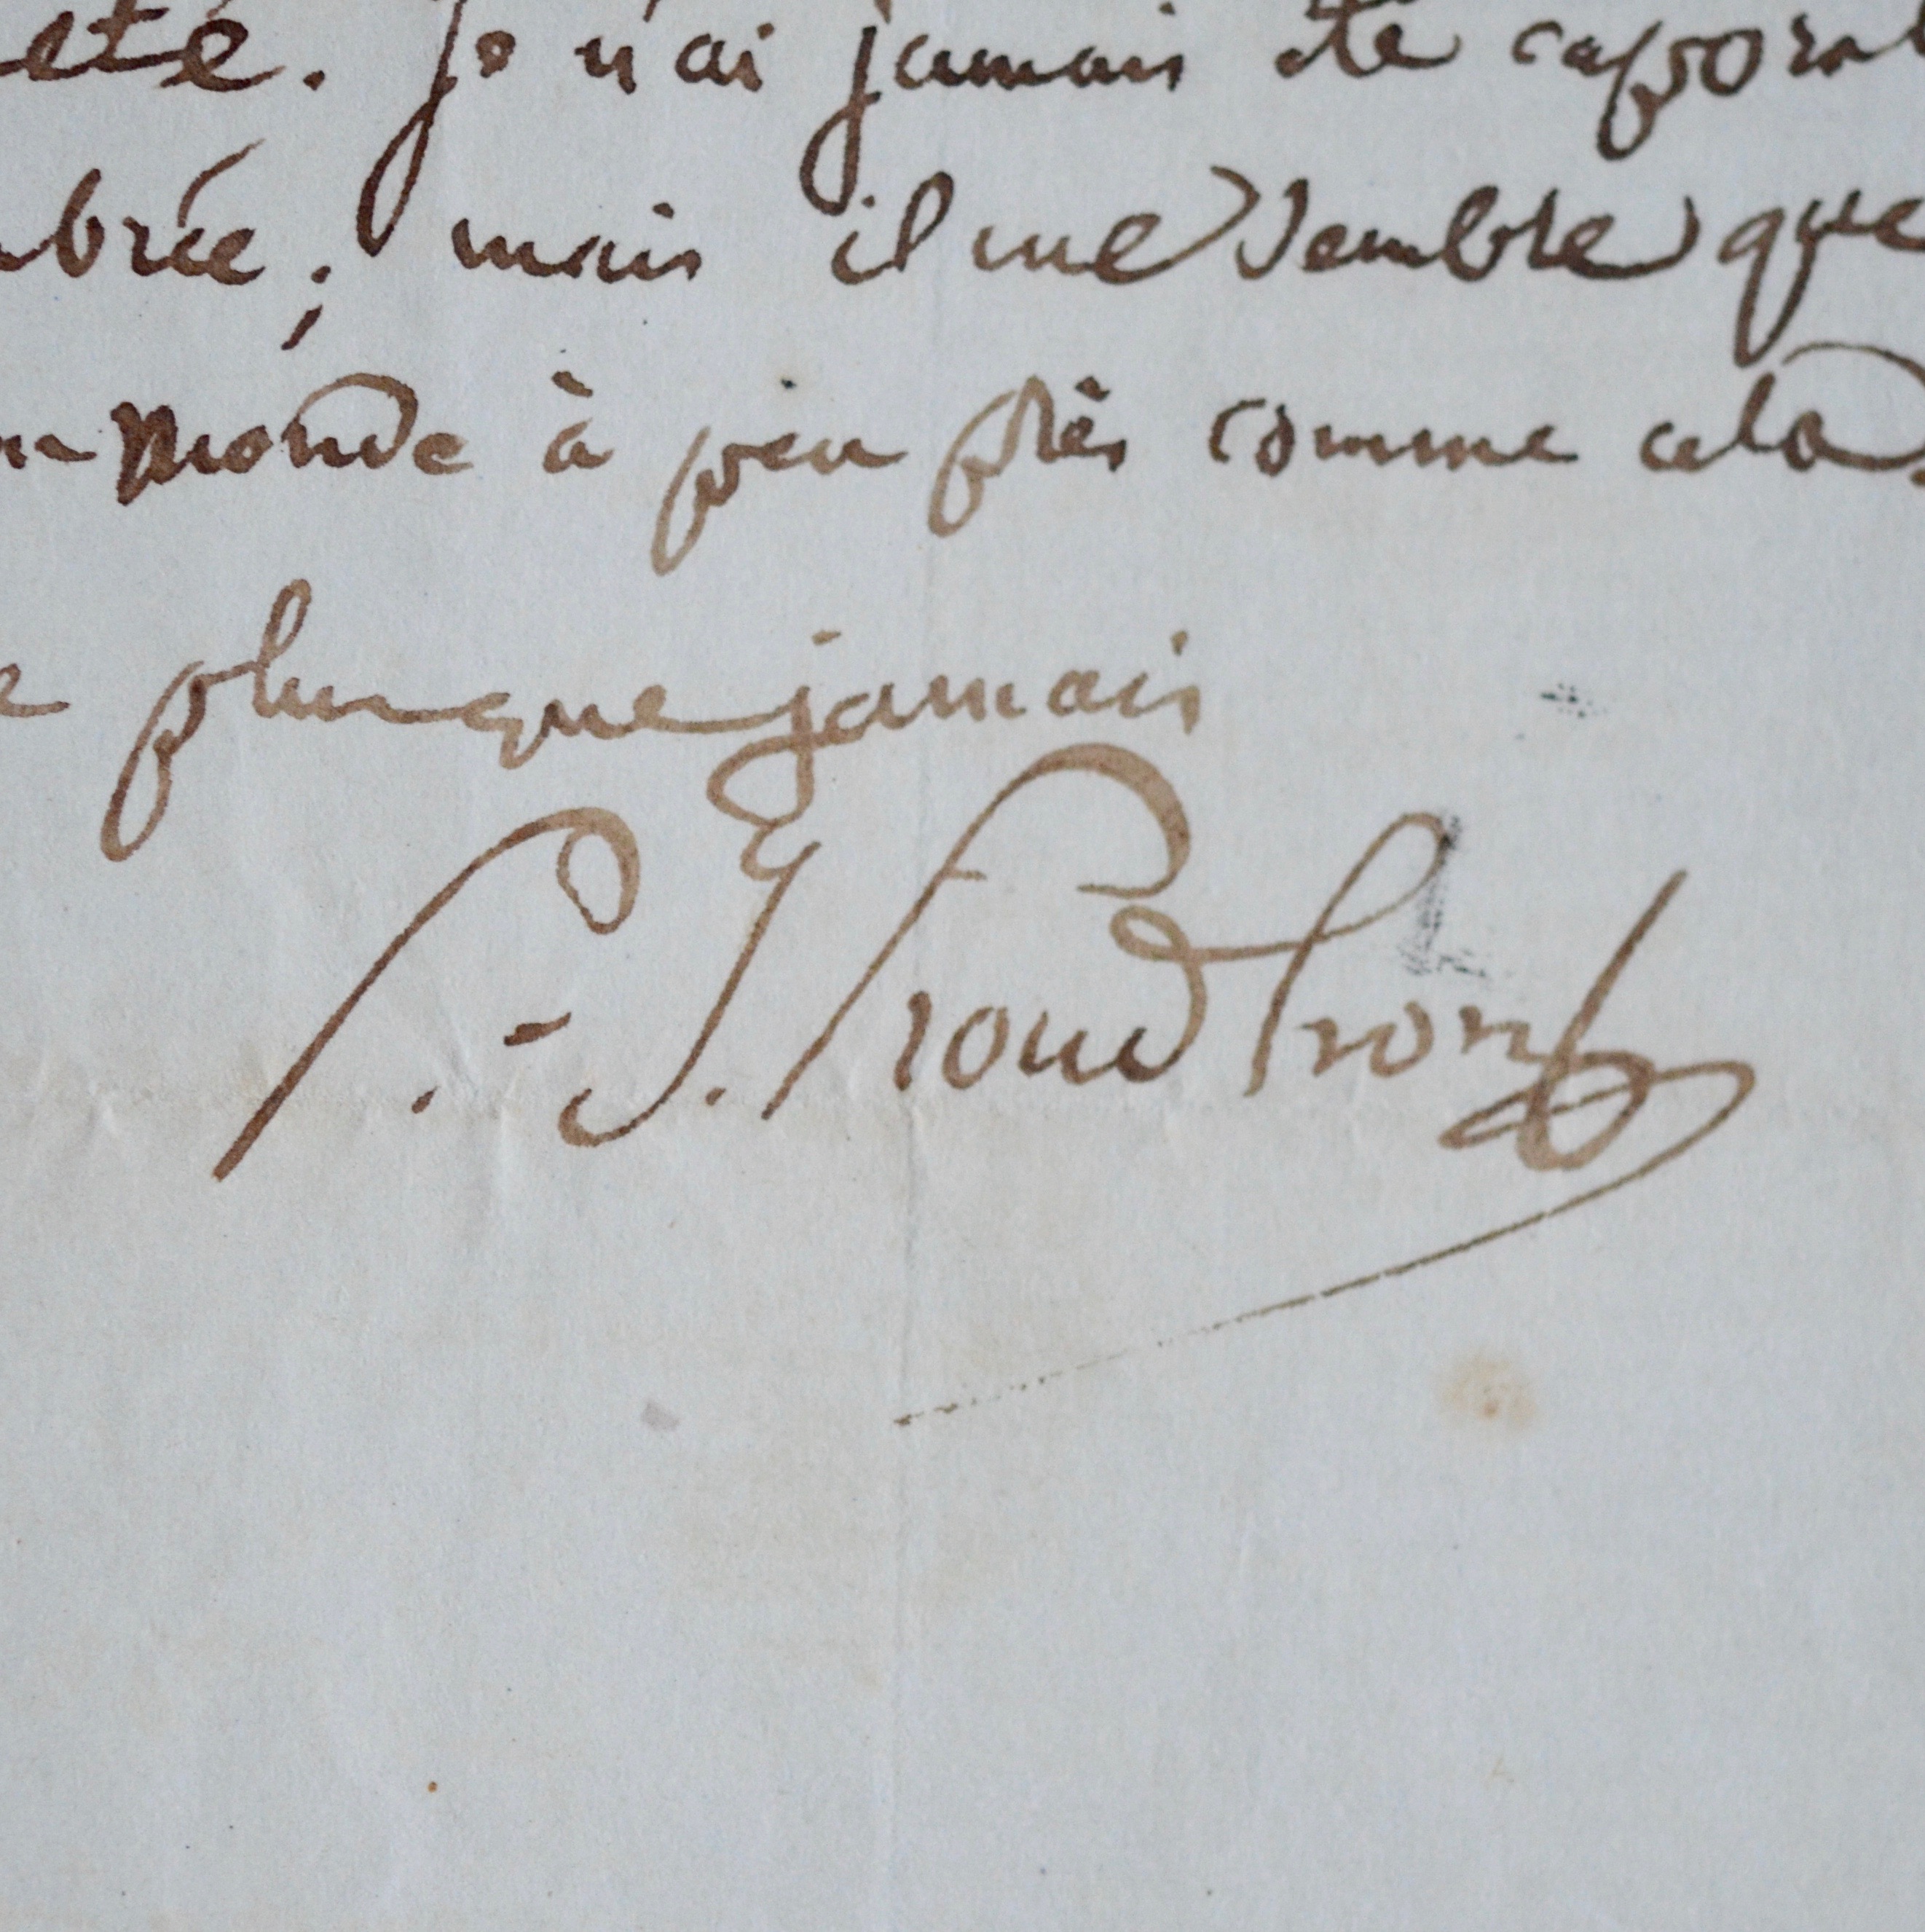 eté. Je n'ai jamais été caporal
brée; mais il me semble que
monde à peu près comme cela
plus que jamais
P.-J. Proudhon